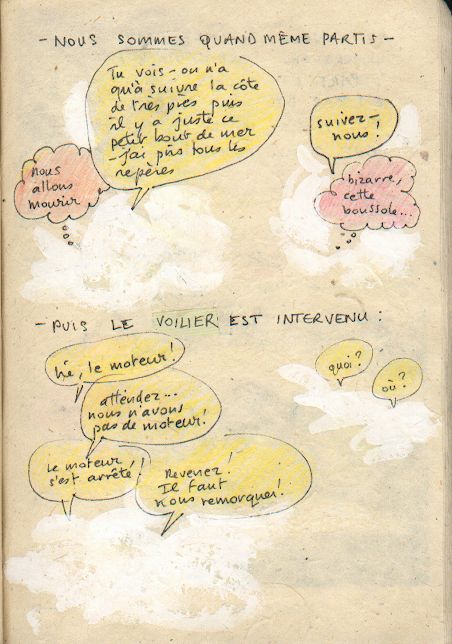 - NOUS SOMMES QUAND MÊME PARTIS -
Tu vois - on n'a
qu'à suivre la côte
de très près puis
il y a juste ce
petit bout de mer
- j'ai pris tous les
repères
suivez-
nous!
nous
allons
mourir
bizarre,
cette
boussole...
- PUIS LE VOILIER EST INTERVENU :
hé, le moteur!
quoi?
où?
attendez...
nous n'avons
pas de moteur!
le moteur
s'est arrêté!
Revenez!
Il faut
nous remorquer!